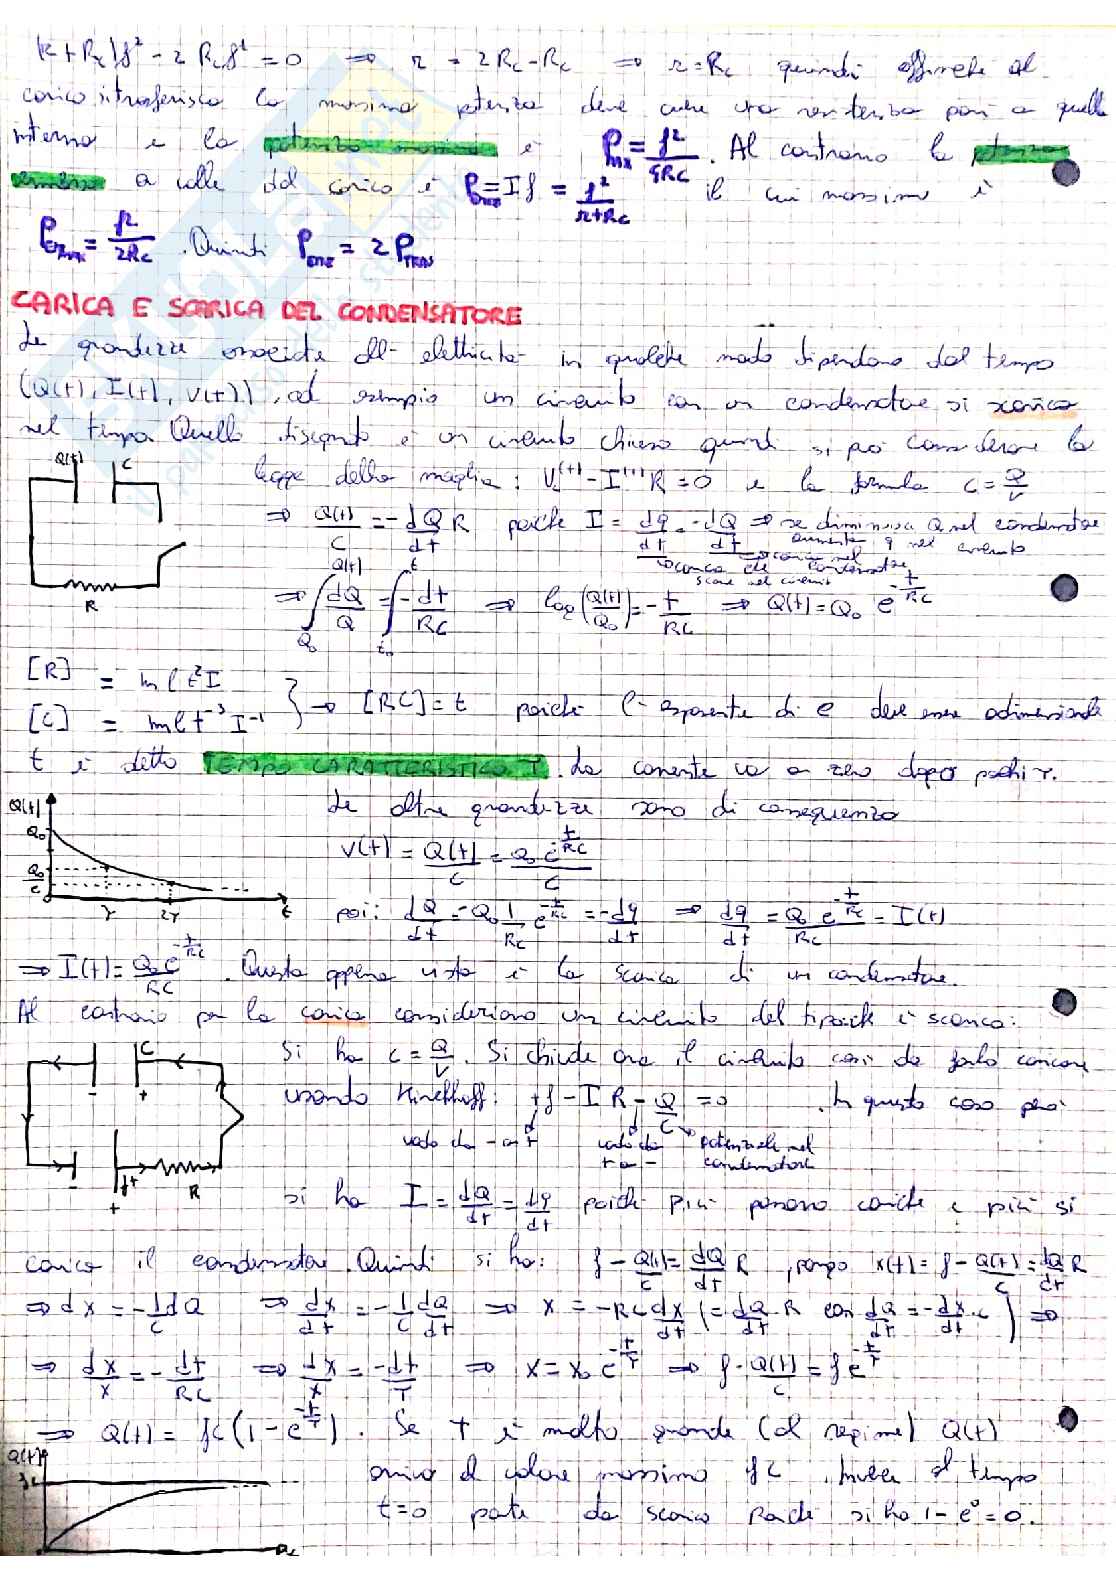 (r+Rc)f² - 2Rcf² = 0 ⇒ r = 2Rc-Rc ⇒ r=Rc quindi affinché al
carico si trasferisca la massima potenza deve avere una resistenza pari a quella
interna e la potenza massima è Pmax = f²/4Rc . Al contrario la potenza
emessa a valle del carico è P = If = f²/(r+Rc) il cui massimo è
PEmax = f²/2Rc . Quindi Peme = 2 PTRAS
CARICA E SCARICA DEL CONDENSATORE
Le grandezze associate all'elettricità in qualche modo dipendono dal tempo
(Q(t), I(t), V(t)), ad esempio un circuito con un condensatore si scarica
nel tempo. Quello disegnato è un circuito chiuso quindi si può considerare la
Q(t) C
R
legge della maglia: V(t) - I(t)R = 0 e la formula C = Q/V
⇒ Q(t)/C = -dQ/dt R poiché I = dq/dt = -dQ/dt ⇒ se diminuisce Q nel condensatore
aumenta q nel circuito
→ carica nel condensatore
→ carica che scorre nel circuito
⇒ ∫Q₀^Q(t) dQ/Q = ∫t₀^t -dt/RC ⇒ log(Q(t)/Q₀) = -t/RC ⇒ Q(t) = Q₀ e^(-t/RC)
[R] = m l t² I
[C] = m l t⁻³ I⁻¹
} → [RC] = t poiché l'esponente di e deve essere adimensionale
t è detto TEMPO CARATTERISTICO τ. La corrente va a zero dopo pochi τ.
Q(t) Q₀ Q₀/C τ 2τ t
Le altre grandezze sono di conseguenza
V(t) = Q(t)/C = Q₀ e^(-t/RC)/C
poi: dQ/dt = -Q₀ 1/RC e^(-t/RC) = -dq/dt ⇒ dq/dt = Q₀/RC e^(-t/RC) = I(t)
⇒ I(t) = Q₀ e^(-t/RC)/RC . Questa appena vista è la scarica di un condensatore.
Al contrario per la carica consideriamo un circuito del tipo è scarica:
C - + - f + + R
Si ha C = Q/V . Si chiude ora il circuito così da farlo caricare
usando Kirchhoff: +f - IR - Q/C = 0 . In questo caso però
vado da - a + vado da + a - potenziale nel condensatore
si ha I = dQ/dt = dq/dt poiché più passano cariche e più si
carica il condensatore. Quindi si ha: f - Q(t)/C = dQ/dt R , pongo x(t) = f - Q(t)/C = dQ/dt R
⇒ dx = -1/C dQ ⇒ dx/dt = -1/C dQ/dt ⇒ x = -RC dx/dt (= dQ/dt R con dQ/dt = -dx/dt C) ⇒
⇒ dx/x = -dt/RC ⇒ dx/x = -dt/τ ⇒ x = x₀ e^(-t/τ) ⇒ f - Q(t)/C = f e^(-t/τ)
⇒ Q(t) = fC(1 - e^(-t/τ)). Se t è molto grande (al regime) Q(t)
arriva al valore massimo fC . Invece al tempo
t=0 parte da scarico poiché si ha 1-e⁰=0.
Q(t) fC